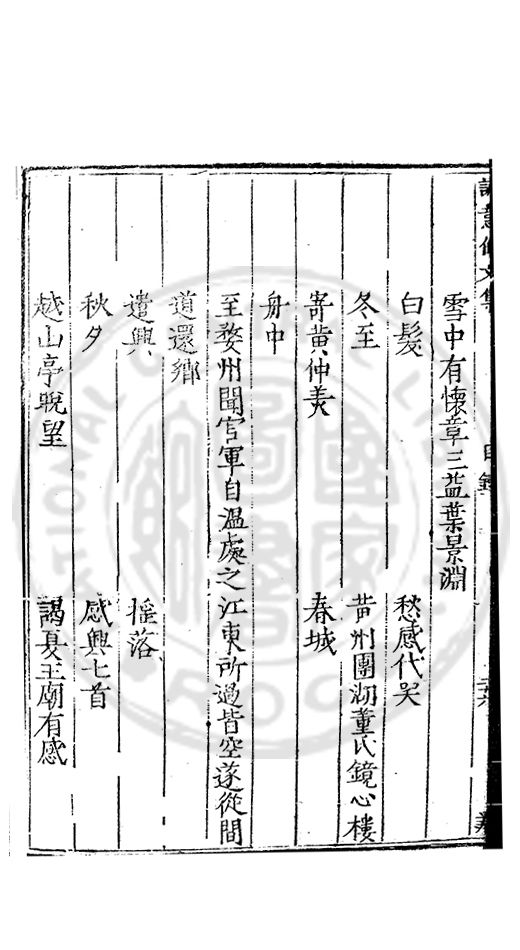 雪中有懷章三益葉景淵
白髮　愁感代哭
冬至　黄州團湖董氏鏡心樓
寄黄仲美　春城
舟中
至婺州聞官軍自温處之江東所過皆空遂從間
道還鄉
遣興　摇落
秋夕　感興七首
越山亭晚望　謁夏王廟有感